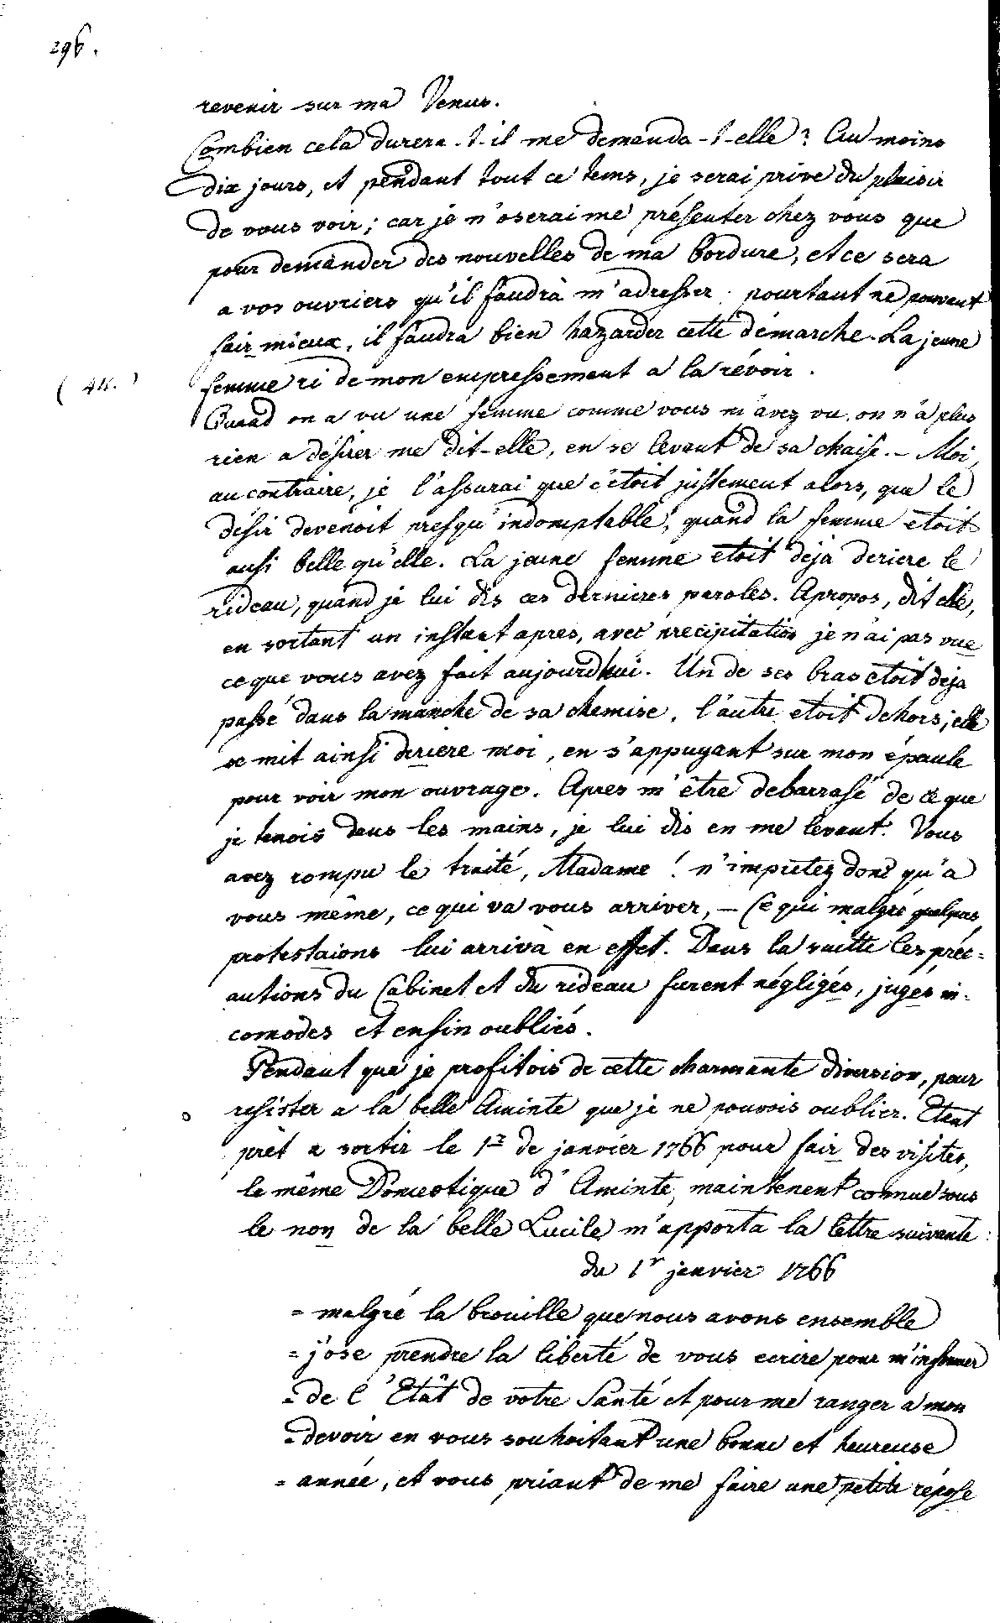 296.
revenir sur ma Venus.
Combien cela durera-t-il me demanda-t-elle? Au moins
dix jours, et pendant tout ce tems, je serai privé du plaisir
de vous voir; car je n'oserai me présenter chez vous que
pour demander des nouvelles de ma bordure, et ce sera
a vos ouvriers qu'il faudra m'adresser. pourtant ne pouvant
fair mieux, il faudra bien hazarder cette démarche. La jeune
femme ri de mon empressement a la révoir.
Quand on a vu une femme comme vous m'avez vu, on n'a plus
rien a désirer me dit-elle, en se levant de sa chaise. - Moi,
au contraire, je l'assurai que c'étoit justement alors, que le
désir devenoit presqu'indomptable, quand la femme etoit
ausi belle qu'elle. La jeune femme etoit déja deriere le
rideau, quand je lui dis ces dernieres paroles. Apropos, dit elle,
en sortant un instant apres, avec precipitation je n'ai pas vue
ce que vous avez fait aujourdhui. Un de ses bras etoit déja
passé dans la manche de sa chemise, l'autre etoit dehors; elle
se mit ainsi deriere moi, en s'appuyant sur mon épaule
pour voir mon ouvrage. Apres m'être debarrasé de ce que
je tenois dans les mains, je lui dis en me levant. Vous
avez rompu le traité, Madame! n'imputez donc qu'a
vous même, ce qui va vous arriver, - Ce qui malgré quelques
protestaions lui arriva en effet. Dans la suitte les préc=
autions du Cabinet et du rideau furent négligés, jugés in-
comodes et enfin oubliés.
Pendant que je profitois de cette charmante diversion, pour
resister a la belle Aminte que je ne pouvois oublier. Etant
prêt a sortir le 1r de janvier 1766 pour fair des visites,
le même Domestique d'Aminte, maintenent connue sous
le non de la belle Lucile m'apporta la lettre suivante:
du 1r janvier 1766
= malgré la brouille que nous avons ensemble
= j'ose prendre la liberté de vous ecrire pour m'informer
= de l'Etât de votre Santé et pour me ranger a mon
= devoir en vous souhaitant une bonne et heureuse
= année, et vous priant de me faire une petite répose